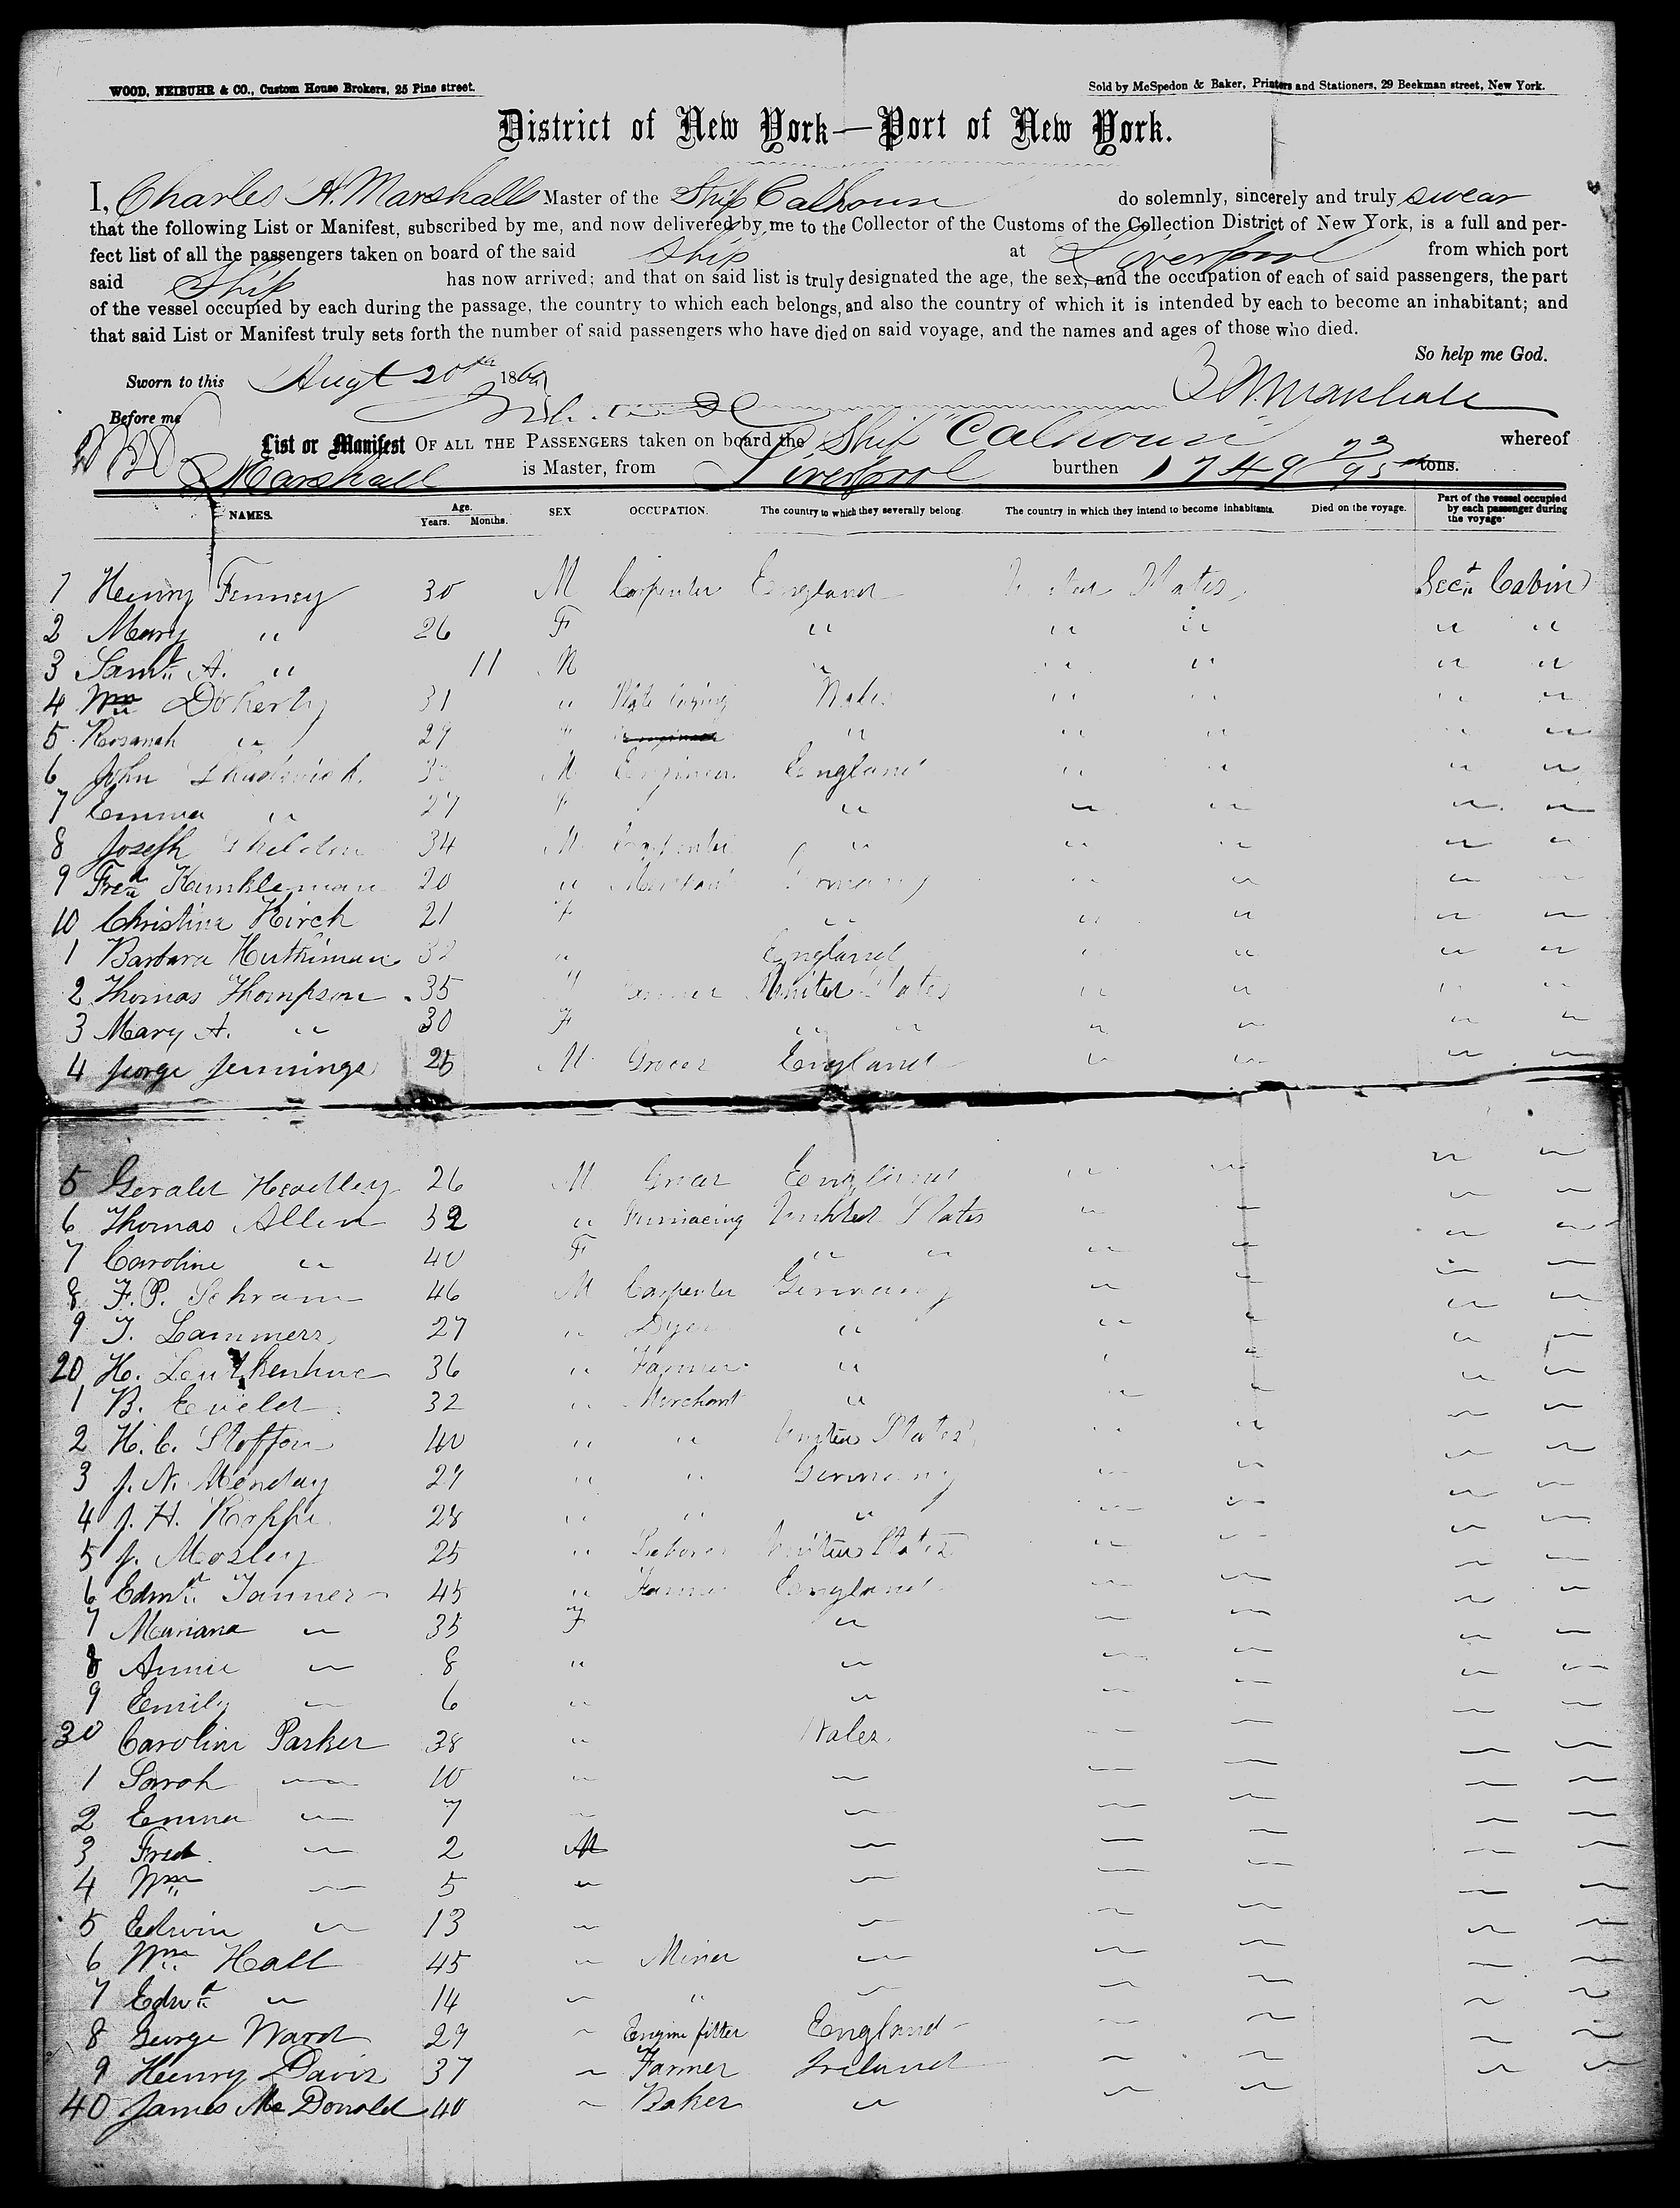 WOOD, NEIBUHR & CO., Custom House Brokers, 25 Pine street.
Sold by McSpedon & Baker, Printers and Stationers, 29 Beekman street, New York.
District of New York—Port of New York.
I, Charles A. Marshall Master of the Ship Calhoun do solemnly, sincerely and truly swear
that the following List or Manifest, subscribed by me, and now delivered by me to the Collector of the Customs of the Collection District of New York, is a full and per-
fect list of all the passengers taken on board of the said Ship at Liverpool from which port
said Ship has now arrived; and that on said list is truly designated the age, the sex, and the occupation of each of said passengers, the part
of the vessel occupied by each during the passage, the country to which each belongs, and also the country of which it is intended by each to become an inhabitant; and
that said List or Manifest truly sets forth the number of said passengers who have died on said voyage, and the names and ages of those who died.
So help me God.
Sworn to this Augt 20th 186
Marshall
Before me
List or Manifest OF ALL THE PASSENGERS taken on board the Ship Calhoun whereof
Marshall is Master, from Liverpool burthen 1749 73/95 tons.
NAMES. Age. Years. Months. SEX OCCUPATION. The country to which they severally belong. The country in which they intend to become inhabitants. Died on the voyage. Part of the vessel occupied by each passenger during the voyage
1 Henry Finney 30 M Carpenter England United States Secd Cabin
2 Mary " 26 F " " " " "
3 Saml A. " 11 M " " " " "
4 Wm Doherty 31 " Plate laying Wales " " " "
5 Rosanah " 29 " " " " " "
6 John M Engineer England " " " "
7 Emma " 27 F " " " " "
8 Joseph Sheldon 34 M Carpenter " " " " "
9 Fredk Kunkleman 20 " Merchant Germany " " " "
10 Christina Kirch 21 F " " " " "
1 Barbara " England " " " "
2 Thomas Thompson 35 United States " " " "
3 Mary A. " 30 F " " " " " "
4 George Jennings 25 M Grocer England " " " "
5 Gerald 26 M Grocer England " " " "
6 Thomas Allen 52 " Furnacing United States " " " "
7 Caroline " 40 F " " " " " "
8 F. P. Schram 46 M Carpenter Germany " " " "
9 J. Lammers 27 " Dyer " " " " "
20 H. 36 " Farmer " " " " "
1 B. Eveler 32 " Merchant " " " " "
2 H. C. Steffon 40 " " United States " " " "
3 J. N. Menday 29 " " Germany " " " "
4 J. H. 28 " " " " " " "
5 J. Mosley 25 " Laborer United States " " " "
6 Edmd Tanner 45 " Farmer England " " " "
7 Mariana " 35 F " " " " "
8 Annie " 8 " " " " " "
9 Emily " 6 " " " " " "
30 Caroline Parker 38 " Wales " " " "
1 Sarah " 10 " " " " " "
2 Emma " 7 " " " " " "
3 Fred " 2 M " " " " "
4 Wm " 5 " " " " " "
5 Edwin " 13 " " " " " "
6 Wm Hall 45 " Miner " " " " "
7 Edwd " 14 " " " " " " "
8 George Ward 29 " Engine fitter England " " " "
9 Henry Davis 37 " Farmer Ireland " " " "
40 James McDonald 40 " Baker " " "